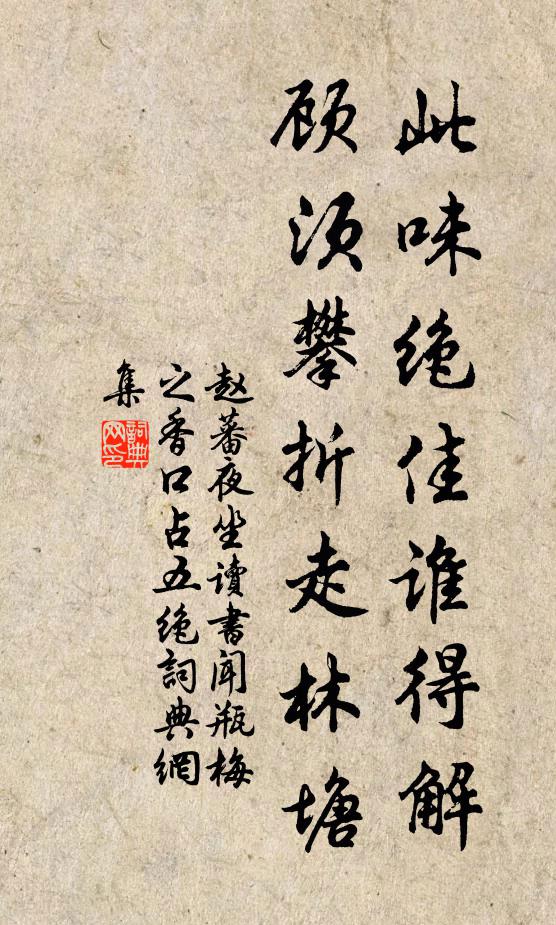 此味绝佳谁得解
顾须攀折走林塘
赵蕃夜坐讀書闻瓶梅
之香口占五绝詞典網
集
詞典
网印